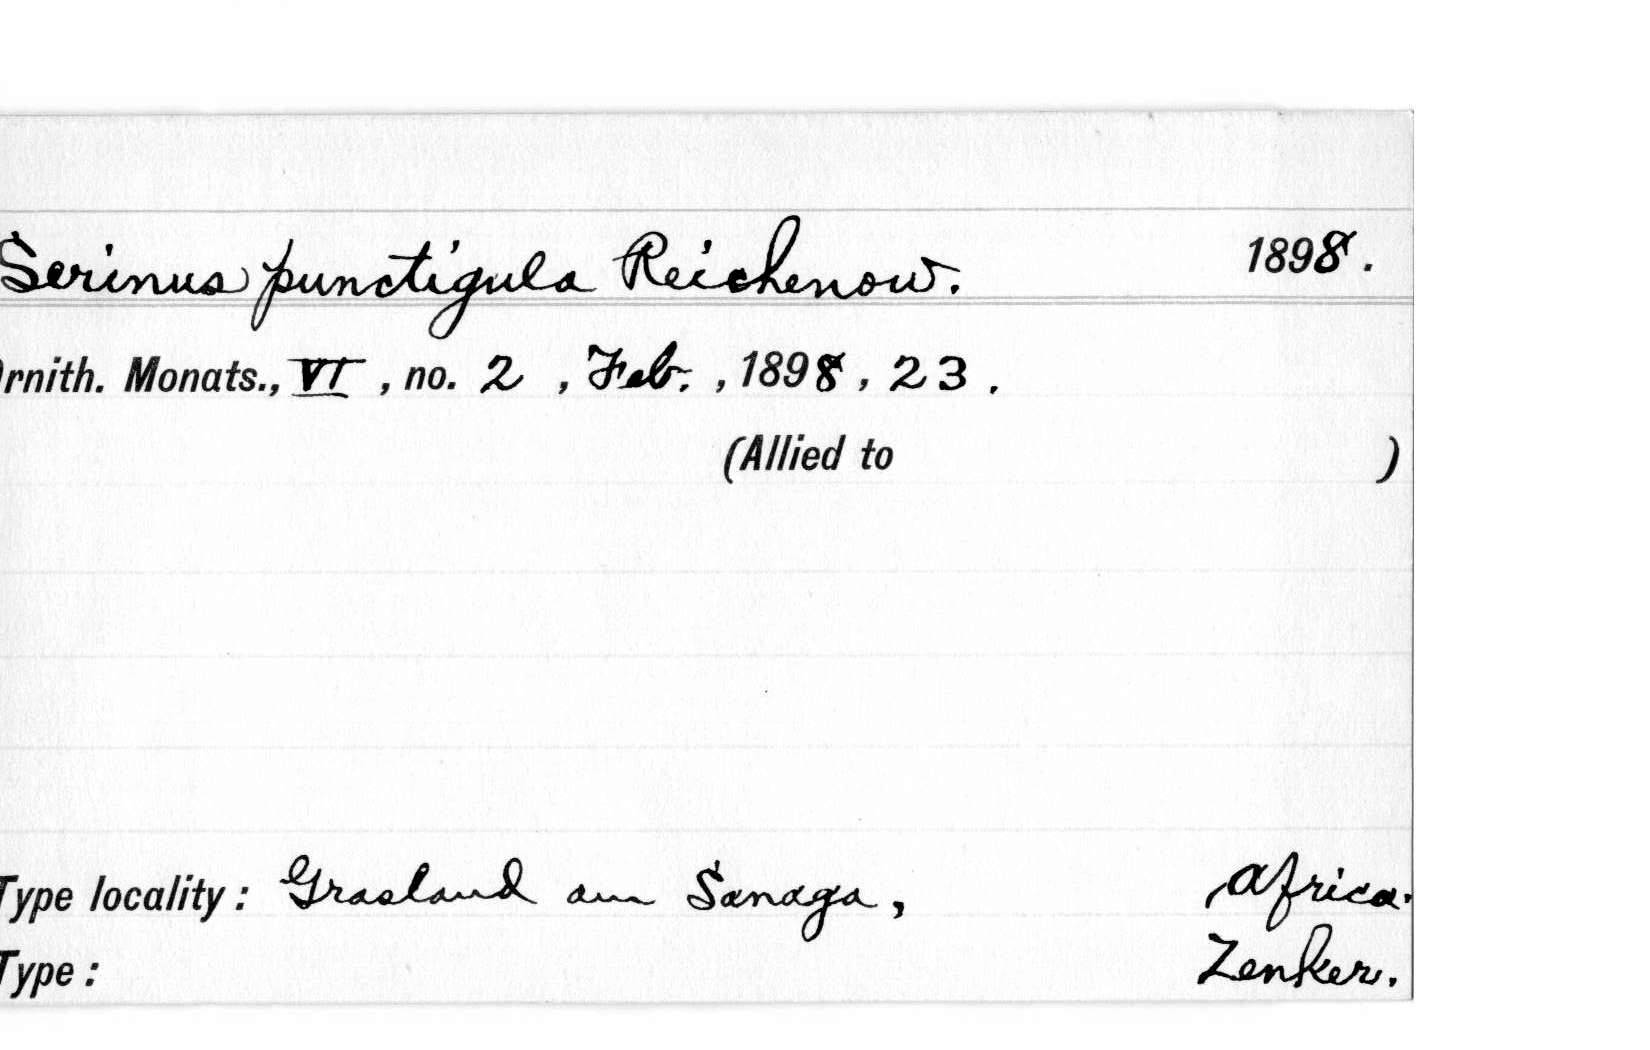 Serinus punctigula Reichenow. 1898.
Ornith. Monats., VI, no. 2, Feb., 1898, 23.
(Allied to )
Type locality: Grasland am Sanaga, Africa.
Type: Zenker.